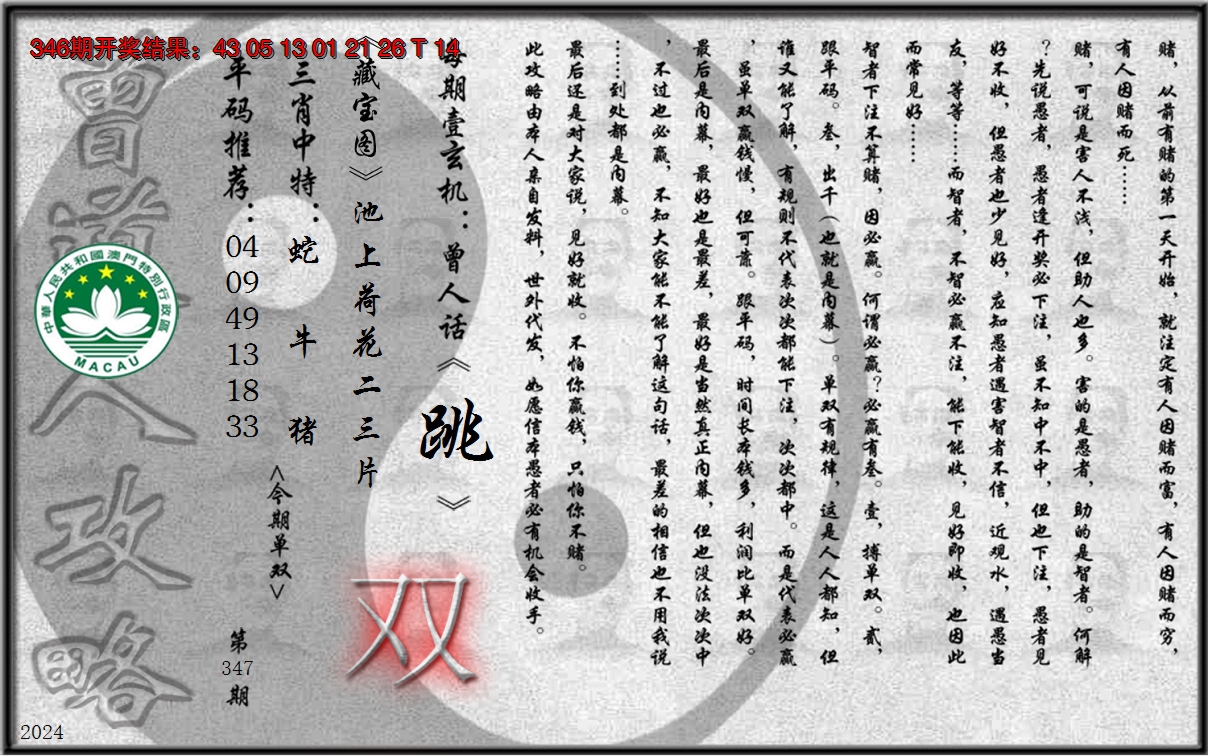 346期开奖结果：43 05 13 01 21 26 T 14
赌，从前有赌的第一天开始，就注定有人因赌而富，有人因赌而穷，
有人因赌而死……
赌，可说是害人不浅，但助人也多。害的是愚者，助的是智者。何解
？先说愚者，愚者逢开奖必下注，虽不知中不中，但也下注，愚者见
好不收，但愚者也少见好，应知愚者遇害智者不信，近观水，遇愚当
友，等等……而智者，不智必赢不注，能下能收，见好即收，也因此
而常见好……
智者下注不算赌，因必赢。何谓必赢？必赢有叁。壹，搏单双。贰，
跟平码。叁，出千（也就是内幕）。单双有规律，这是人人都知，但
谁又能了解，有规则不代表次次都能下注，次次都中。而是代表必赢
，虽单双赢钱慢，但可靠。跟平码，时间长本钱多，利润比单双好。
最后是内幕，最好也是最差，最好是当然真正内幕，但也没法次次中
，不过也必赢，不知大家能不能了解这句话，最差的相信也不用我说
……到处都是内幕。
最后还是对大家说，见好就收。不怕你赢钱，只怕你不赌。
此攻略由本人亲自发料，世外代发，如愿信本愚者必有机会收手。
每期壹玄机：曾人话《跳》
《藏宝图》池上荷花二三片
双
三肖中特：蛇 牛 猪
<今期单双>
平码推荐：04 09 49 13 18 33
第347期
曾道人攻略
中華人民共和國澳門特別行政區
MACAU
2024